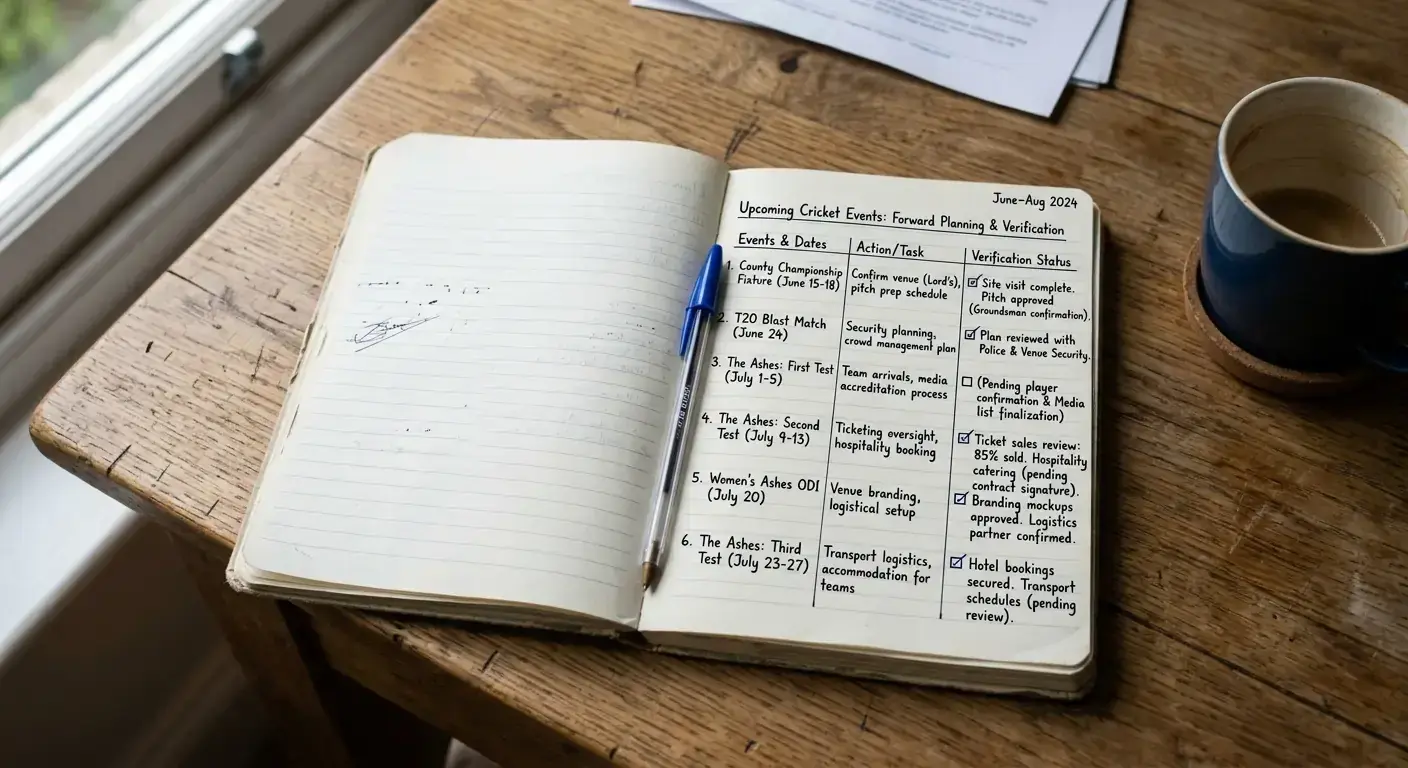 June-Aug 2024
Upcoming Cricket Events: Forward Planning & Verification
Events & Dates
Action/Task
Verification Status
1. County Championship
Fixture (June 15-18)
Confirm venue (Lord's),
pitch prep schedule
Site visit complete.
Pitch approved
(Groundsman confirmation).
2. T20 Blast Match
(June 24)
Security planning,
crowd management plan
Plan reviewed with
Police & Venue Security.
3. The Ashes: First Test
(July 1-5)
Team arrivals, media
accreditation process
(Pending player
confirmation & Media
list finalization)
4. The Ashes: Second
Test (July 9-13)
Ticketing oversight,
hospitality booking
Ticket sales review:
85% sold. Hospitality
catering (pending
contract signature).
5. Women's Ashes ODI
(July 20)
Venue branding,
logistical setup
Branding mockups
approved. Logistics
partner confirmed.
6. The Ashes: Third
Test (July 23-27)
Transport logistics,
accommodation for
teams
Hotel bookings
secured. Transport
schedules (pending
review).